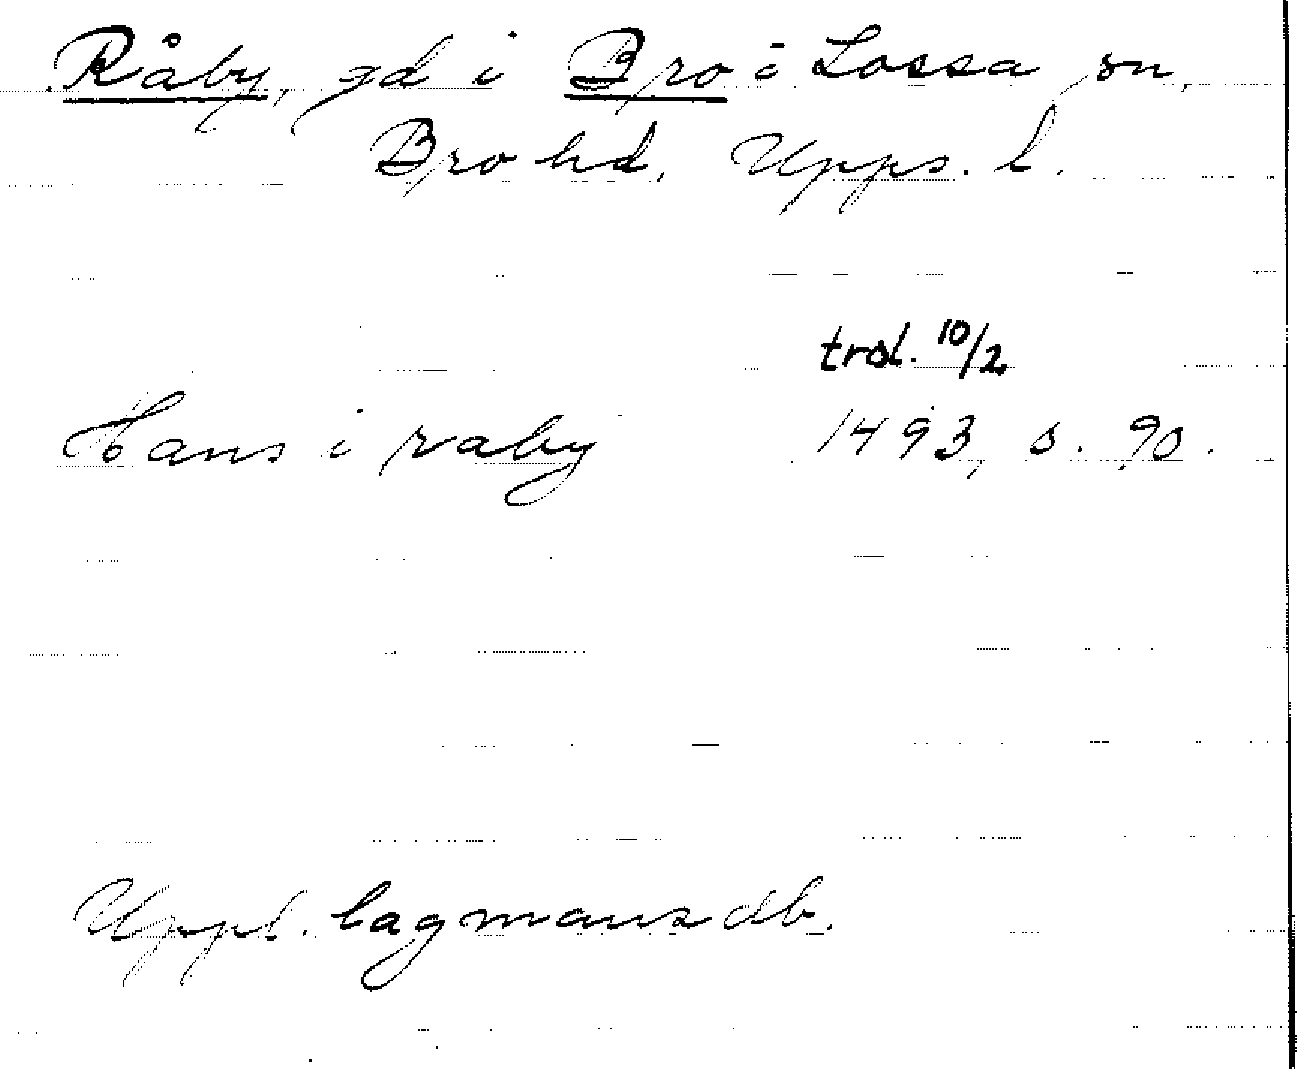 Råby, gd i Bro i Lossa sn,
Bro hd, Upps. l.
trol. 10/2
Hans i raby 1493, s. 90.
Uppl. lagmansdb.